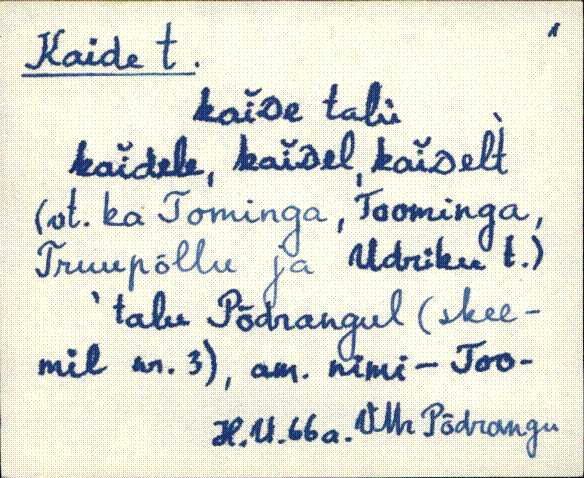 1
Kaide t.
kaiᴅe talù
kaidele, kaĭᴅel, kaĭᴅelt̀
(vt. ka Tominga, Toominga,
Truupõllu ja Udriku t.)
`talu Põdrangul (skee-
mil nr. 3), am. nimi - Too-
H.U. 66a. VMr Põdrangu